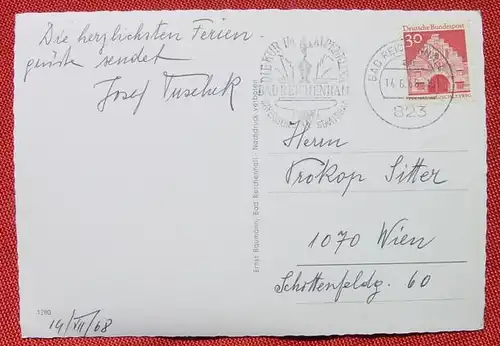 Die herzlichsten Ferien-
grüße sendet
Josef Tuschek
DIE KUR IM
BAD REICHENHALL
BAD REICHENHALL
14.6.68
823
30
Deutsche Bundespost
Herrn
Prokop Sitter
1070 Wien
Schottenfeldg. 60
Ernst Baumann, Bad Reichenhall · Nachdruck verboten
1260
14/VII/68